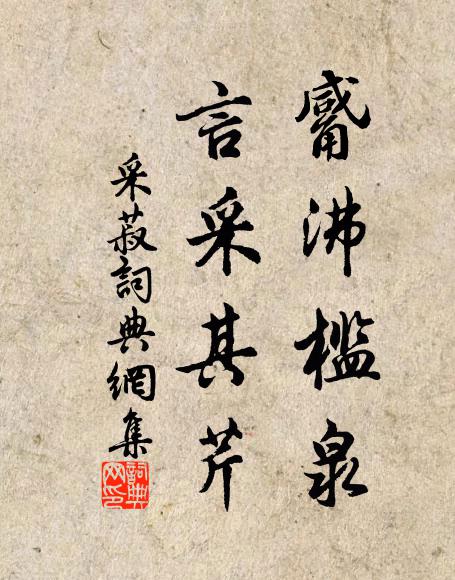 觱沸檻泉
言采其芹
采菽詞典網集
詞典
网印